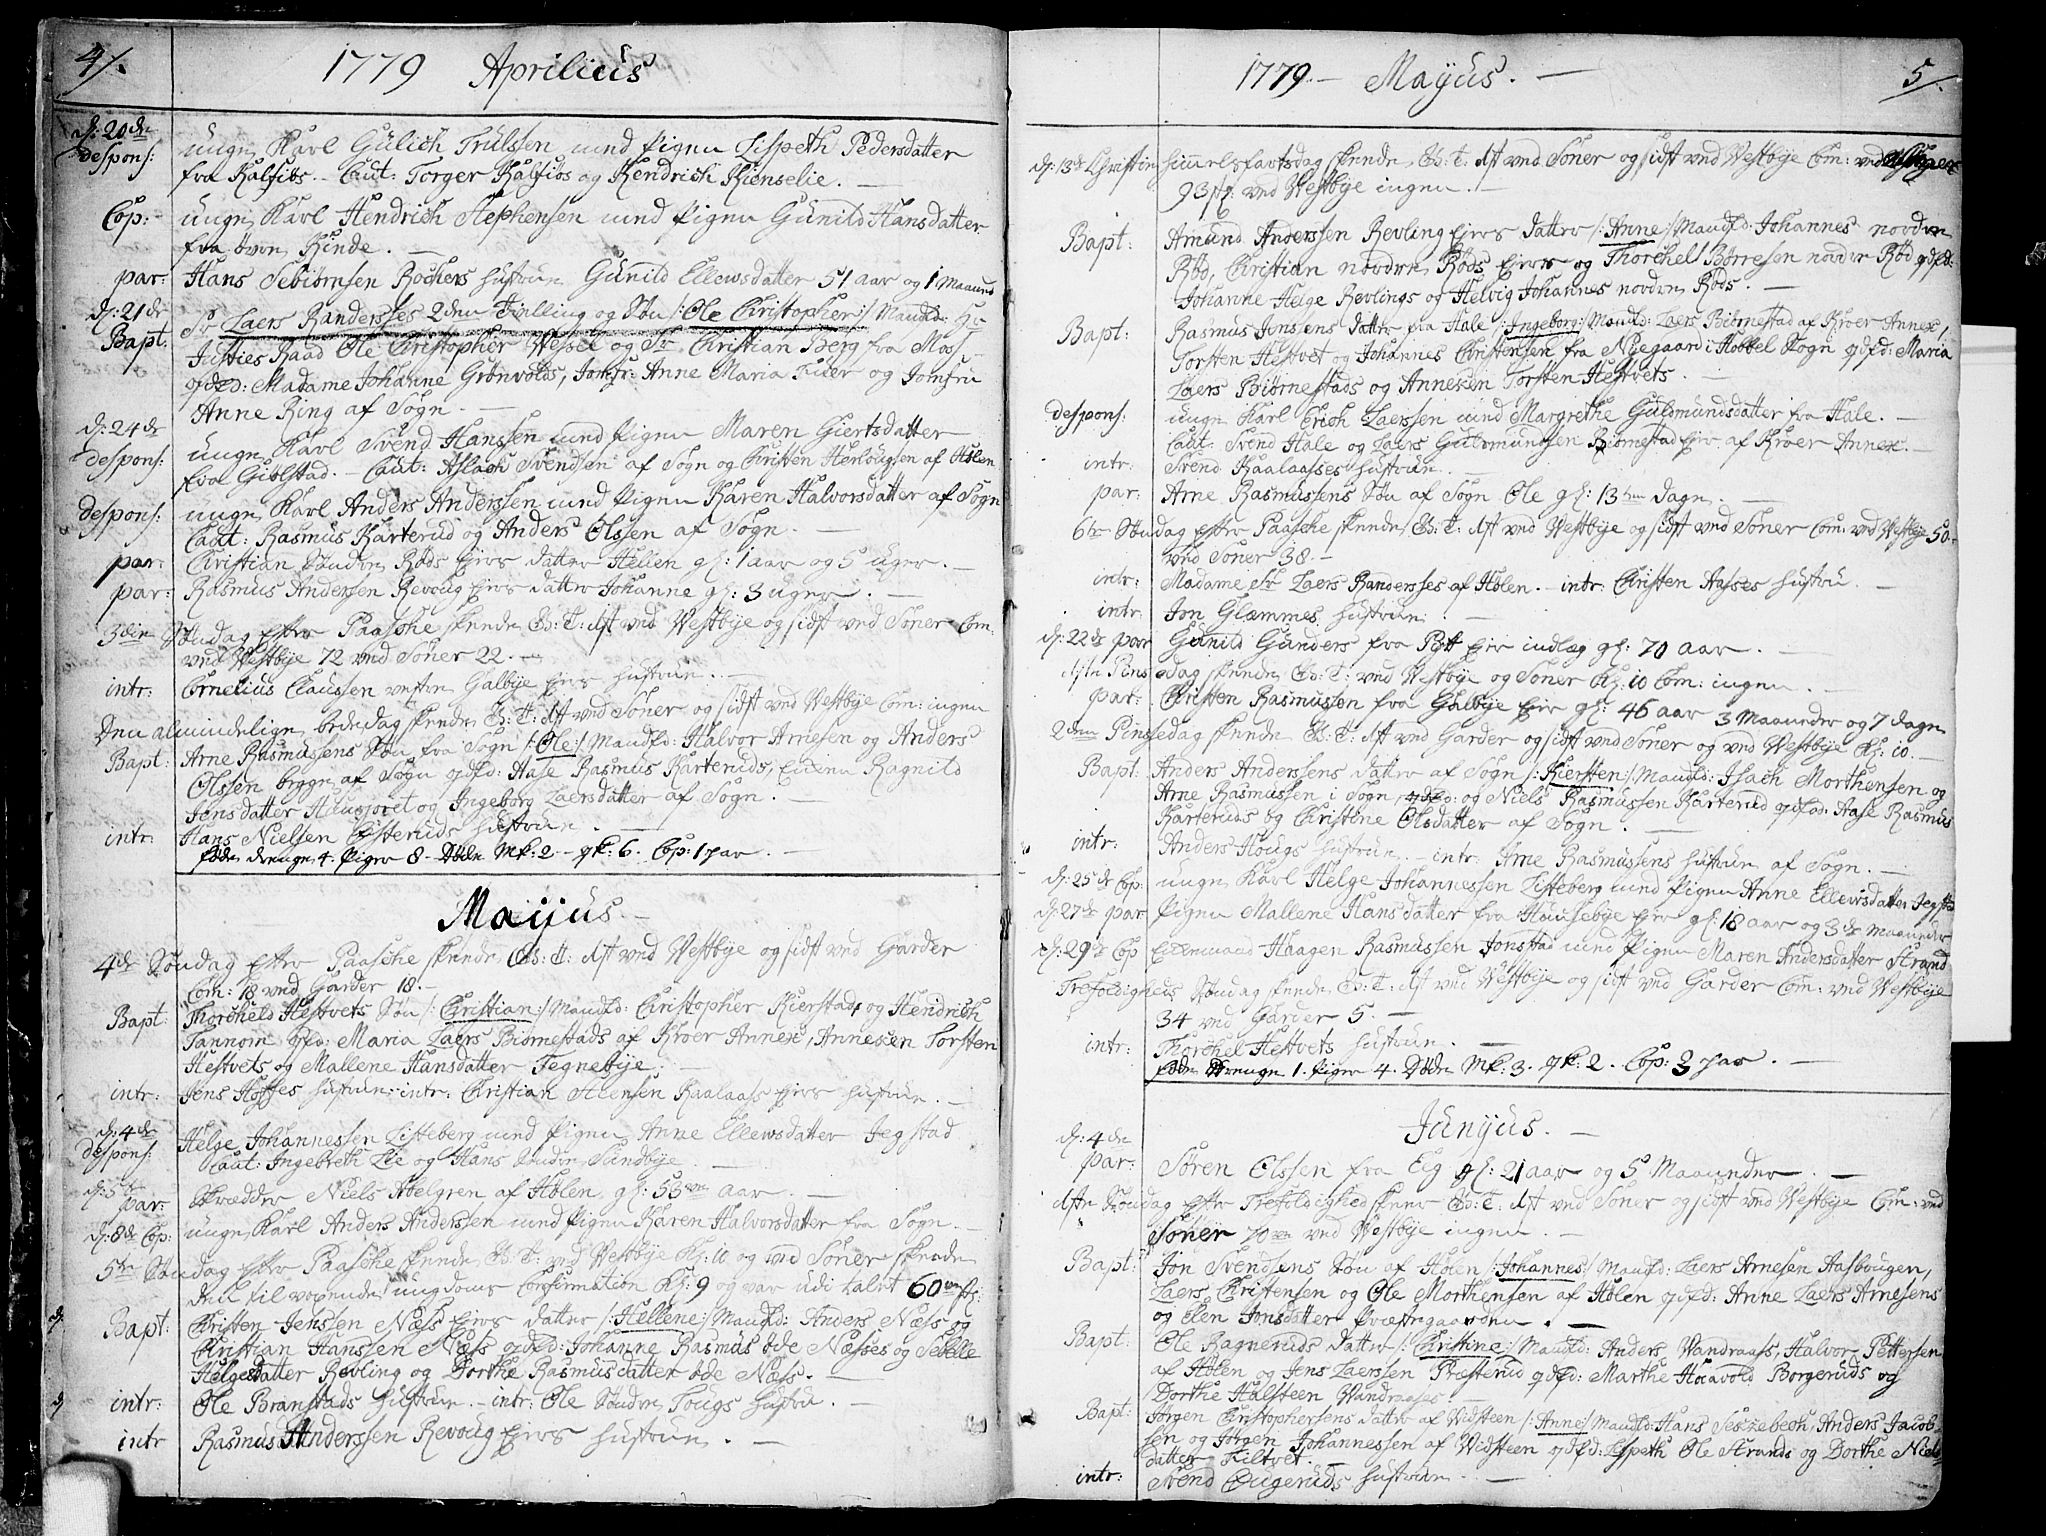 4/.
1779 Aprilius
d: 20de despons: unge Karl Gulich Trulssen med Pigen Lispeth Pedersdatter
fra Kalsiøs. Caut: Torger Kalsiøs og Hendrich Kienselie. —
Cop: unge Karl Hendrich Stephensen med Pigen Gunild Hansdatter
fra øvre Kinde. —
par: Hans Sebiørnsen Rochers hustrue Gunild Ellewsdatter 51 aar og 1 Maaned
d: 21de Sr Laers Randersses 2den Tvilling og Søn /: Ole Christopher :/ Maudfd: Hr
Bapt. Justies Raad Ole Christopher Wessel og Sr Christian Berg fra Moss
qdfd: Madame Johanne Grønvolds, Jomfr: Anne Maria og Jomfru
Anne Ring af Sogn. —
d: 24de unge Karl Svend Hanssen med Pigen Maren Giertsdatter
despons: fra Giølstad. — Caut: Aslach Svendsen af Sogn og Christen Herlougsen af Hølen
despons: unge Karl Anders Anderssen med Pigen Karen Halvorsdatter af Sogn
Caut: Rasmus Karterud og Anders Olssen af Sogn. —
par: Christian Søndre Røds Eiers datter Hellen gl: 1 aar og 5 uger. —
par: Rasmus Andersen Revoug Eiers datter Johanne gl: 3 uger. —
3die Søndag Efter Paasche skeede G: T: Ast ved Westbye og sidst ved Soner Com:
ved Westbye 72 ved Soner 22. —
intr: Cornelius Claussen vestre Galbye Eiers hustrue. —
Den almindelige bededag skeede G: T: Ast ved Soner og sidst ved Westbye Com: ingen
Bapt: Arne Rasmussens Søn fra Sogn /: Ole :/ Maudfd: Halvor Arnesen og Anders
Olssen begge af Sogn qdfd: Aase Rasmus Karteruds, Ragnild
Jensdatter og Ingeborg Laersdatter af Sogn. —
intr: Hans Nielsen hustrue. —
fødde drenge 4. Piger 8. Døde Mk: 2 — qk: 6. Cop: 1 par. —
Mayus. —
4de Søndag Efter Paasche skeede G: T: Ast ved Westbye og sidst ved Garder
Com: 18 ved Garder 18. —
Bapt: Thorchels Hestvets Søn /: Christian :/ Maudfd: Christopher Kierstad og Hendrich
Tannom qdfd: Maria Laers Biørnestads af Kroer Annex, Annexen Torsten
Hestvets og Mallene Hansdatter Tegnebye. —
intr: Jens Hoffes hustrue. — intr: Christian Stensen Kaalaas Eiers hustrue. —
d: 4de Helge Johannessen Listeberg med Pigen Anne Ellewsdatter Jegstad
despons: Caut: Ingebreth Lie og Hans Søndre Sundbye. —
d: 5te par: Skrædder Niels Abelgren af Hølen gl: 53 aar. —
d: 8de Cop: unge Karl Anders Anderssen med Pigen Karen Halvorsdatter fra Sogn. —
5te Søndag Efter Paasche skeede G: T: ved Westbye Kl: 10 og ved Soner skeede
den til voxende ungdoms Confirmation Kl: 9 og var udi talet 60
Bapt: Christen Jenssen Næss Eiers datter /: Hellene :/ Maudfd: Anders Næss og
Christian Hanssen Næss qdfd: Johanne Rasmus øde Næsses og Sebelle
Helgesdatter Revling og Dorthe Rasmusdatter øde Næss. —
intr: Ole Branstads hustrue. — intr: Ole Søndre Tougs hustru. —
intr Rasmus Anderssen Revoug Eiers hustrue. —
1779. — Mayus. —
5/.
d: 13de Christi himelsfartsdag skeede G: T: Ast ved Soner og sidst ved Westbye Com: ved
93 ved Westbye ingen. —
Bapt: Amund Anderssen Revling Eiers datter /: Anne :/ Maudfd: Johannes nordre
Rød, Christian nordre Røds Eiers og Thorchel Børresen nordre Rød qdfd:
Johanne Helge Revlings og Helvig Johannes nordre Røds. —
Bapt: Rasmus Jensens datter fra Hale /: Ingeborg :/ Maudfd: Laers Biørnestad af Kroer Annex,
Torsten Hestvet og Johannes Christensen fra Nyegaard i Hobbel Sogn qdfd: Maria
Laers Biørnestads og Annexen Torsten Hestvets. —
despons: unge Karl Erich Laerssen med Margrethe Guldmundsdatter fra Hale. —
Caut: Svend Hale og Laers Guldmundssen Biørnestad Eier af Kroer Annex. —
intr: Svend Kaalaasses hustrue. —
par: Arne Rasmussens Søn af Sogn Ole gl: 13 dage. —
6te Søndag Efter Paasche skeede G: T: Ast ved Westbye og sidst ved Soner Com: ved Westbye 50.
ved Soner 38. —
intr: Madame Sr Laers Randersses af Hølen. — intr: Christen Aasses hustru. —
intr: Jon Glæmmes hustrue. —
d: 22de par Gunild Gunders fra Pytt Eier indlæg gl: 70 aar. —
Aste Pinsedag skeede G: T: ved Westbye og Soner Kl: 10 Com: ingen. —
par: Christen Rasmussen fra Galbye Eier gl: 46 aar 3 Maaneder og 7 dage
2den Pinsedag skeede G: T: Ast ved Garder og sidst ved Soner og ved Westbye Kl: 10. —
Bapt: Anders Anderssens datter af Sogn /: Kiersten :/ Maudfd: Isach Morthensen og
Arne Rasmussen i Sogn, og Niels Rasmussen Karterud qdfd: Aase Rasmus
Karteruds og Christine Olsdatter af Sogn. —
intr: Anders Hougs hustrue. — intr: Arne Rasmussens hustrue af Sogn. —
d: 25de Cop: unge Karl Helge Johannessen Listeberg med Pigen Anne Ellewsdatter Jegstad
d: 27de par Pigen Mallene Hansdatter fra Huusebye Eier gl: 18 aar og 3de Maaneder
d: 29de Cop Enkemand Haagen Rasmussen Jonstad med Pigen Maren Andersdatter Strand
Trefoldigheds Søndag skeede G: T: Ast ved Westbye og sidst ved Garder Com: ved Westbye
34 ved Garder 5. —
intr: Thorchel Hestvets hustrue. —
fødde Drenge 1. Piger 4. Døde Mk: 3. qk: 2. Cop: 3 par. —
Junyus. —
d: 4de
par: Søren Olssen fra Eig gl: 21 aar og 5 Maaneder. —
Aste Søndag Efter Trefoldighed skeede G: T: Ast ved Soner og sidst ved Westbye Com: ved
Soner 70 ved Westbye ingen. —
Bapt: Jon Svendsens Søn af Hølen /: Johannes :/ Maudfd: Laers Arnesen Aasbougen,
Laers Christensen og Ole Morthensen af Hølen qdfd: Anne Laers Arnesens
og Elen Jonsdatter Præstegaarden. —
Bapt: Ole Ragneruds datter /: Christine :/ Maudfd: Anders Wandraas, Halvor Pettersen
af Hølen og Jens Laerssen Præsterud qdfd: Marthe Borgeruds og
Dorthe Halsteen Wandraases
Bapt: Jørgen Christophersens datter af Vidsteen /: Anne :/ Maudfd: Hans Anders Jacob-
sen og Jørgen Johannessen af Widsteen qdfd: Lispeth Ole Strands og Dorthe Niels
datter Kiltvet. —
intr: Svend hustrue. —